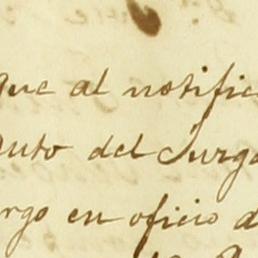 que al notific
auto del Jurga
argo en oficio d